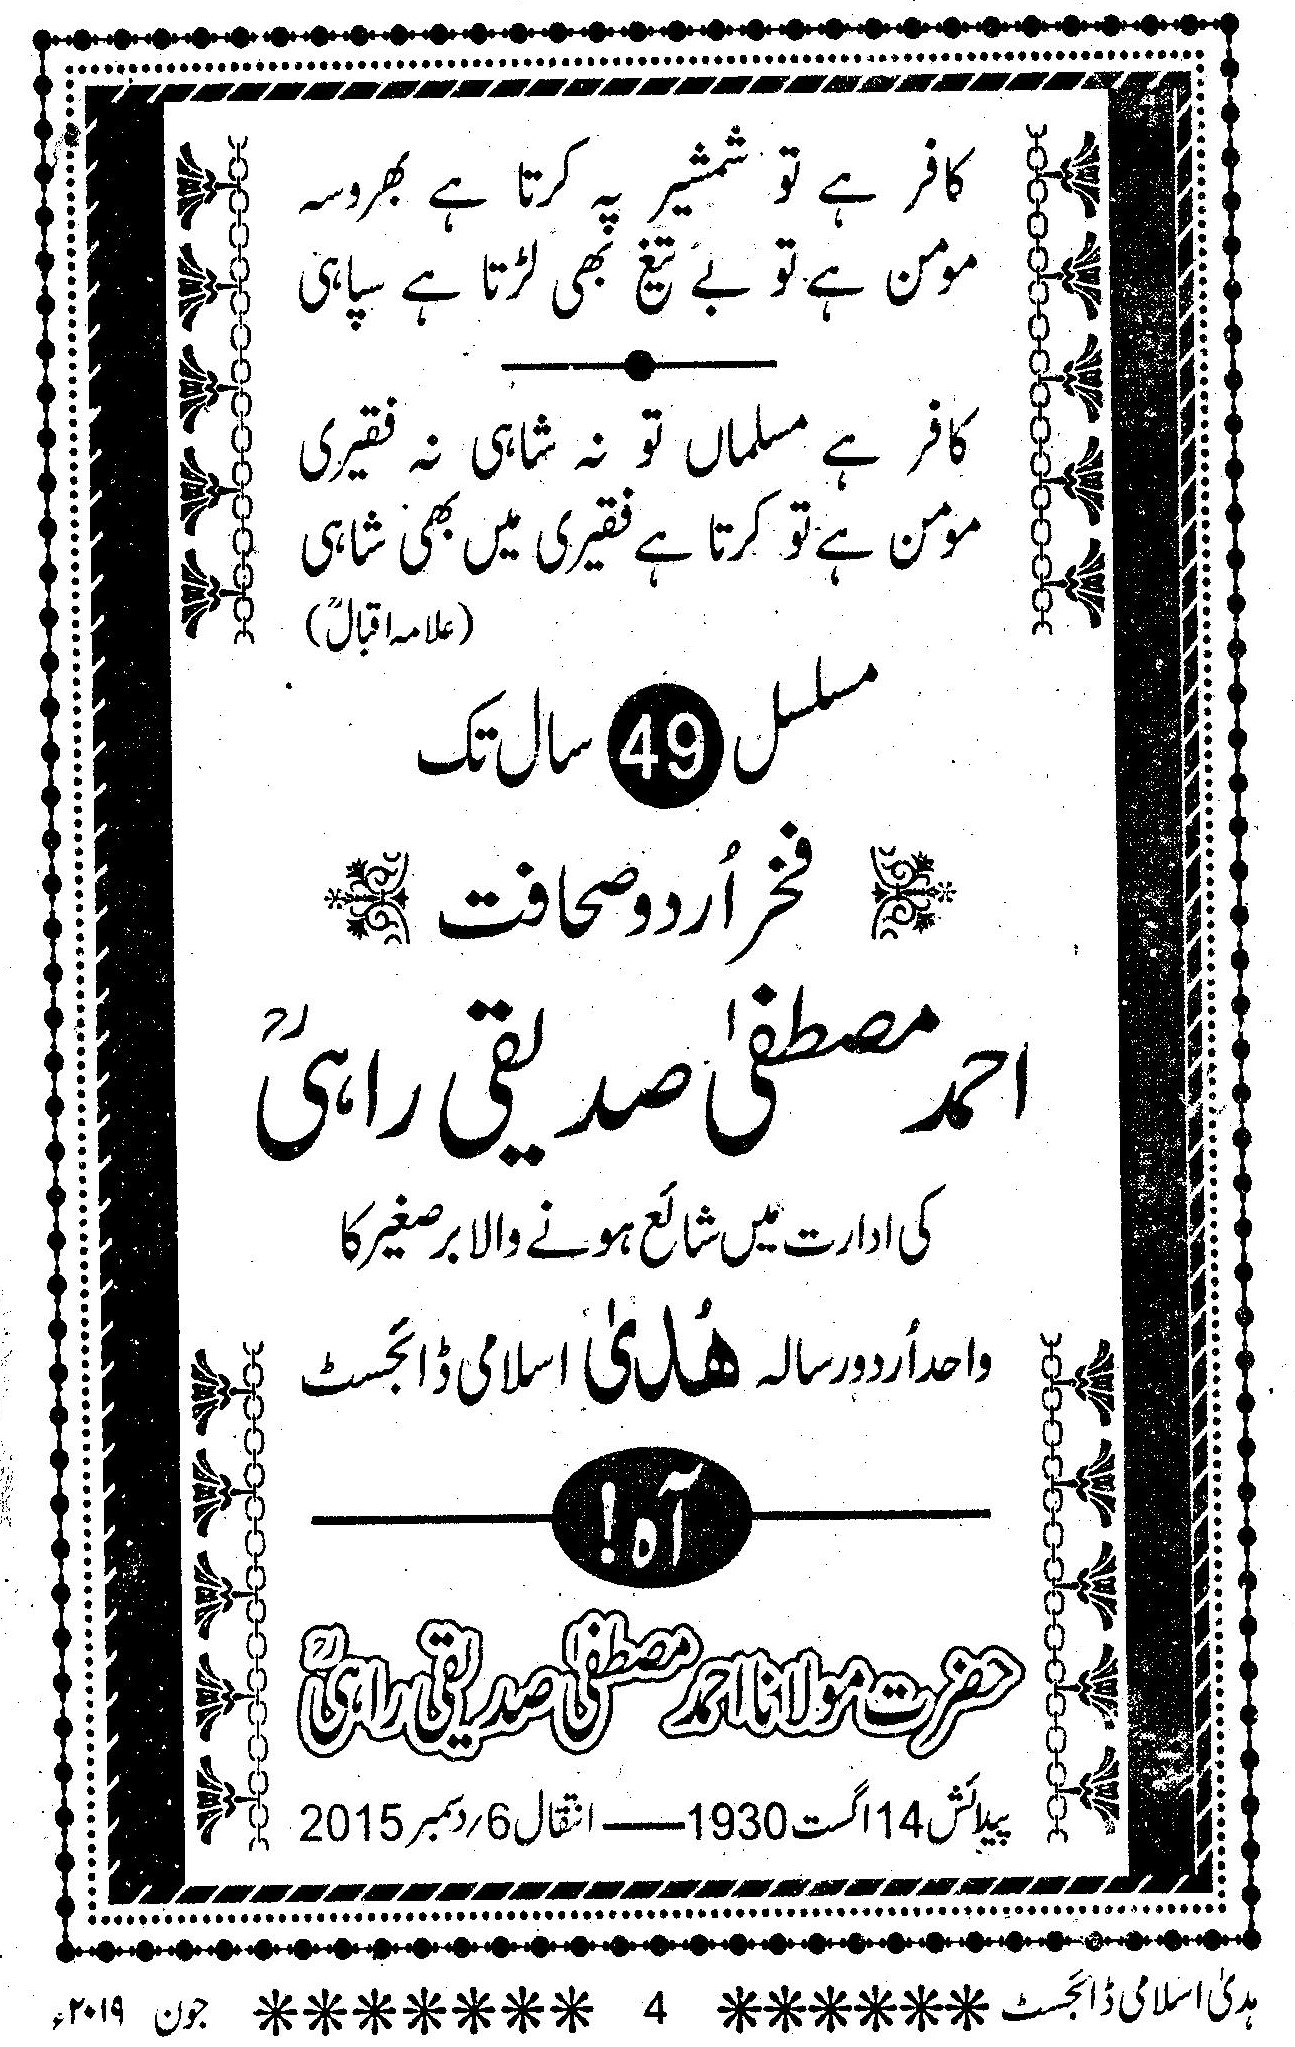 کافر ہے تو شمشیر پہ کرتا ہے بھروسہ
مومن ہے تو بے تیغ بھی لڑتا ہے سپاہی
کافر ہے مسلماں تو نہ شاہی نہ فقیری
مومن ہے تو کرتا ہے فقیری میں بھی شاہی
(علامہ اقبالؒ)
مسلسل 49 سال تک
فخر اُردو صحافت
احمد مصطفیٰ صدیقی راہیؒ
کی ادارت میں شائع ہونے والا برصغیر کا
واحد اُردو رسالہ ھُدیٰ اسلامی ڈائجسٹ
آہ!
حضرت مولانا احمد مصطفیٰ صدیقی راہیؒ
پیدائش 14 اگست 1930 —— انتقال 6؍دسمبر 2015
ہدیٰ اسلامی ڈائجسٹ 4 جون ۲۰۱۹ء